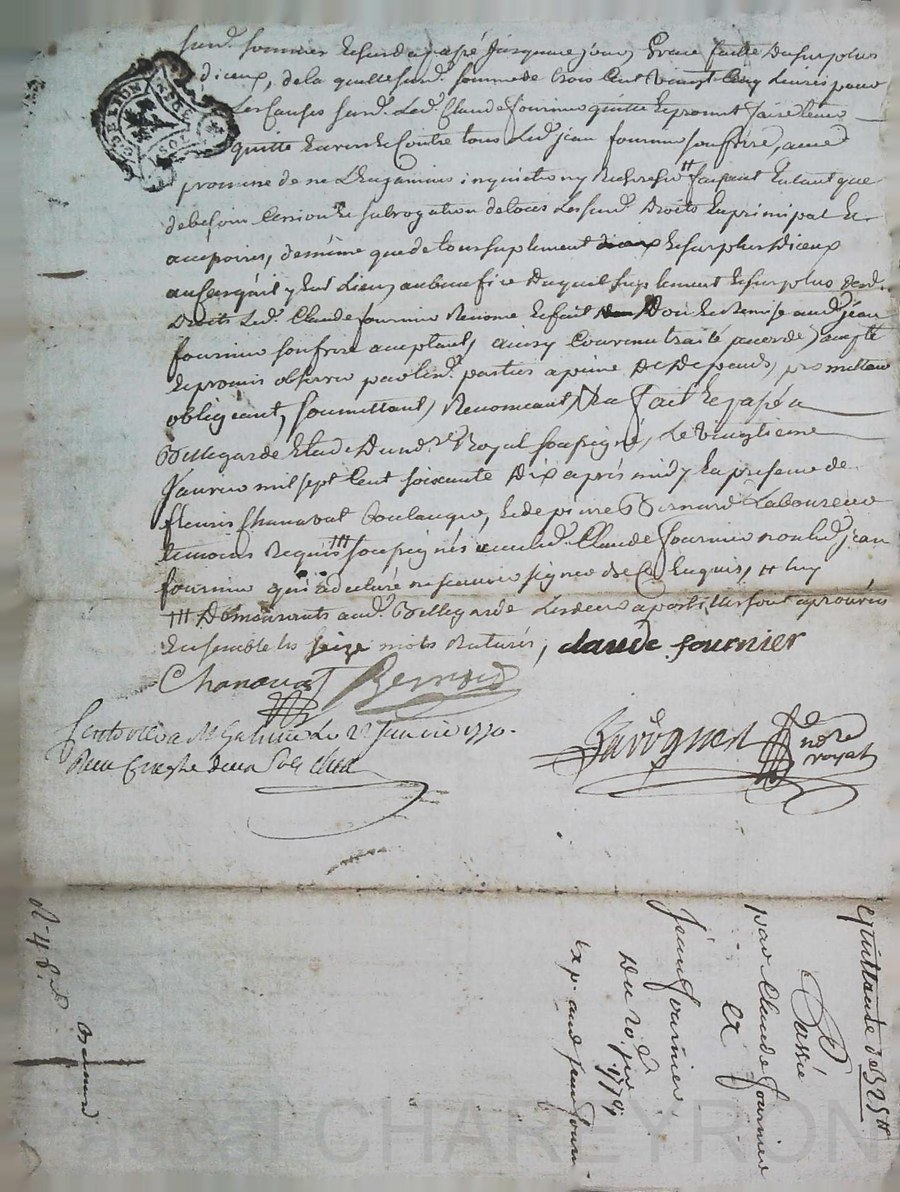 sund. sommes
d'iceux, de laquelle sund. somme de trois cent vingt cinq livres pour
les causes sund. Led. Claude fournier quitte et promet faire tenir
quitte envers et contre tous led. jean fournier son frere, avec
promesse de ne l'en jamais inquietter ny rechercher # faisant entant que
de besoin cession et subrogation de tous les sund. Droits en principal et
accessoires, de même que de tous suplement et surplus d'iceux
au cas qu'il y eut Lieu, au benefice duquel suplement et surplus desd.
Droits Led. Claude fournier Renonce et fait Don et Remise aud. jean
fournier son frere acceptant, ainsy convenu traité, accordé, accepté
et promis observer par lesd. parties a peine de Depends, promettant
obligeant, soumettant, Renonceant, &a fait et passé a
Bellegarde Etude Dund. re Royal soussigné, Le vingtieme
Janvier mil sept cent soixante Dix après midy En presence de
fleuris Chanavat Boulanger, et de pierre Bernard Laboureur
temoins Requis ### soussignés avec led. Claude fournier non led. jean
fournier qui a declaré ne scavoir signer de ce Enquis, # luy
### Demeurants aud. Bellegarde Les deux apostilles sont aprouvées
Ensemble les seize mots Raturés, claude fournier
Chanavat Bernard
Controllé a St Galmier Le 27 Janvier 1770.
Reçu
Jarognet nore royal
Quittance de 325 #
Passée
par Claude fournier
a
Jean fournier
Du 20 jer 1770
exp. aud jean fourn.
Bernard
CHAREYRON